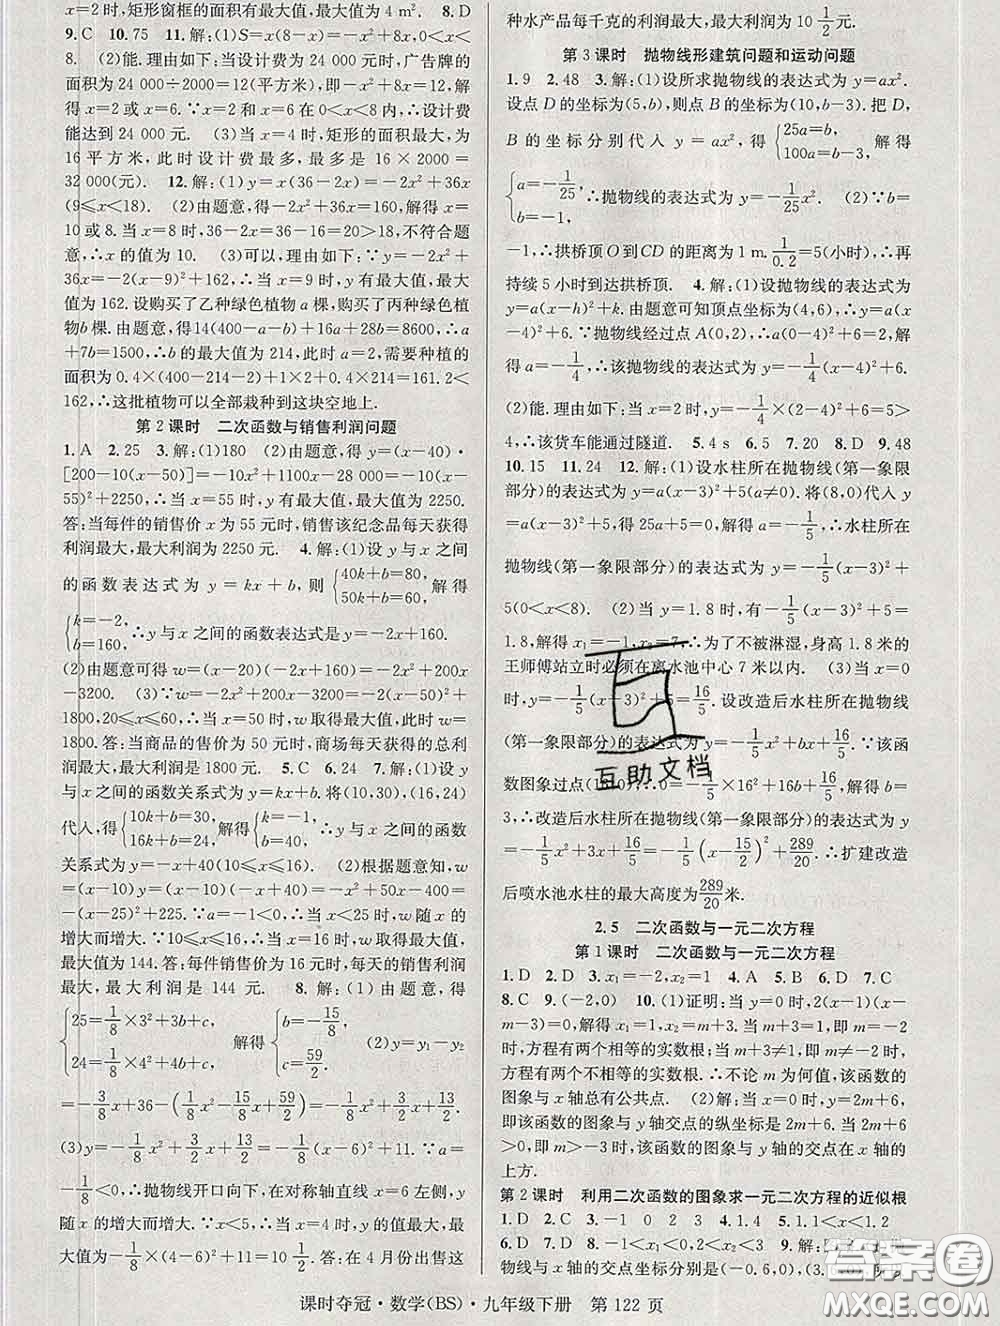 2时,矩形窗框的面积有最大值,最大值为4 m². 8.D
9.C 10.75 11.解:(1)S=x(8-x)=-x²+8x,0<x<
8. (2)能.理由如下:当设计费为24 000元时,广告牌的
面积为24 000÷2000=12(平方米),即-x²+8x=12,解
得x=2或x=6.∵x=2和x=6在0<x<8内,∴设计费
能达到24 000元. (3)当x=4时,矩形的面积最大,为
16平方米,此时设计费最多,最多是16×2000=
32 000(元). 12.解:(1)y=x(36-2x)=-2x²+36x
(9≤x<18). (2)由题意,得-2x²+36x=160,解得x=
10或8.当x=8时,36-2x=36-16=20>18,不符合题
意,∴x的值为10. (3)可以,理由如下:∵y=-2x²+
36x=-2(x-9)²+162,∴当x=9时,y有最大值,最大
值为162.设购买了乙种绿色植物a棵,购买了丙种绿色植
物b棵.由题意,得14(400-a-b)+16a+28b=8600,∴a
+7b=1500,∴b的最大值为214,此时a=2,需要种植的
面积为0.4×(400-214-2)+1×2+0.4×214=161.2<
162,∴这批植物可以全部栽种到这块空地上.
第2课时 二次函数与销售利润问题
1.A 2.25 3.解:(1)180 (2)由题意,得y=(x-40)·
[200-10(x-50)]=-10x²+1100x-28 000=-10(x-
55)²+2250,∴当x=55时,y有最大值,最大值为2250.
答:当每件的销售价x为55元时,销售该纪念品每天获得
利润最大,最大利润为2250元. 4.解:(1)设y与x之间
的函数表达式为y=kx+b,则{40k+b=80, 50k+b=60, 解得
{k=-2, b=160, ∴y与x之间的函数表达式是y=-2x+160.
(2)由题意可得w=(x-20)(-2x+160)=-2x²+200x
-3200. (3)∵w=-2x²+200x-3200=-2(x-50)²+
1800,20≤x≤60,∴当x=50时,w取得最大值,此时w=
1800.答:当商品的售价为50元时,商场每天获得的总利
润最大,最大利润是1800元. 5.C 6.24 7.解:(1)设y
与x之间的函数关系式为y=kx+b.将(10,30),(16,24)
代入,得{10k+b=30, 16k+b=24, 解得{k=-1, b=40, ∴y与x之间的函数
关系式为y=-x+40(10≤x≤16). (2)根据题意知,w=
(x-10)y=(x-10)(-x+40)=-x²+50x-400=-(x
-25)²+225.∵a=-1<0,∴当x<25时,w随x的
增大而增大.∵10≤x≤16,∴当x=16时,w取得最大值,
最大值为144.答:每件销售价为16元时,每天的销售利润
最大,最大利润是144元. 8.解:(1)由题意,得
{25=1/8×3²+3b+c, 24=1/8×4²+4b+c, 解得{b=-15/8, c=59/2. (2)y=y₁-y₂
=-3/8x+36-(1/8x²-15/8x+59/2)=-1/8x²+3/2x+13/2.
(3)y=-1/8x²+3/2x+13/2=-1/8(x-6)²+11.∵a=
-1/8<0,∴抛物线开口向下,在对称轴直线x=6左侧,y
随x的增大而增大.∵x<5,∴当x=4时,y取最大值,最
大值为-1/8×(4-6)²+11=10 1/2.答:在4月份出售这
种水产品每千克的利润最大,最大利润为10 1/2元.
第3课时 抛物线形建筑问题和运动问题
1.9 2.48 3.解:(1)设所求抛物线的表达式为y=ax².
设点D的坐标为(5,b),则点B的坐标为(10,b-3).把D,
B的坐标分别代入y=ax²,得{25a=b, 100a=b-3, 解得
{a=-1/25, b=-1, ∴抛物线的表达式为y=-1/25x². (2)∵b=
-1,∴拱桥顶O到CD的距离为1 m.1/0.2=5(小时),∴再
持续5小时到达拱桥顶. 4.解:(1)设抛物线的表达式为
y=a(x-h)²+k.由题意可知顶点坐标为(4,6),∴y=a(x
-4)²+6.∵抛物线经过点A(0,2),∴a(0-4)²+6=2,解
得a=-1/4,∴该抛物线的表达式为y=-1/4(x-4)²+6.
(2)能.理由如下:当x=2时,y=-1/4×(2-4)²+6=5>
4,∴该货车能通过隧道. 5.4 s 6.5 7.20 8.D 9.48
10.15 11.24 12.解:(1)设水柱所在抛物线(第一象限
部分)的表达式为y=a(x-3)²+5(a≠0).将(8,0)代入
y=a(x-3)²+5,得25a+5=0,解得a=-1/5,∴水柱所在
抛物线(第一象限部分)的表达式为y=-1/5(x-3)²+
5(0<x<8). (2)当y=1.8时,有-1/5(x-3)²+5=
1.8,解得x₁=-1,x₂=7,∴为了不被淋湿,身高1.8米的
王师傅站立时必须在离水池中心7米以内. (3)当x=0
时,y=-1/5(x-3)²+5=16/5.设改造后水柱所在抛物线
(第一象限部分)的表达式为y=-1/5x²+bx+16/5.∵该函
数图象过点(16,0),∴0=-1/5×16²+16b+16/5,解得b=
3,∴改造后水柱所在抛物线(第一象限部分)的表达式为y
=-1/5x²+3x+16/5=-1/5(x-15/2)²+289/20,∴扩建改造
后喷水池水柱的最大高度为289/20米.
2.5 二次函数与一元二次方程
第1课时 二次函数与一元二次方程
1.D 2.D 3.x₁=-2,x₂=1 4.A 5.B 6.D 7.C
8.C 9.(-2,0) 10.(1)证明:当y=0时,2(x-1)(x-
m-3)=0,解得x₁=1,x₂=m+3.当m+3=1,即m=-2
时,方程有两个相等的实数根;当m+3≠1,即m≠-2时,
方程有两个不相等的实数根.∴不论m为何值,该函数的
图象与x轴总有公共点. (2)解:当x=0时,y=2m+6,
即该函数的图象与y轴交点的纵坐标是2m+6.当2m+6
>0,即m>-3时,该函数的图象与y轴的交点在x轴的
上方.
第2课时 利用二次函数的图象求一元二次方程的近似根
1.D 2.C 3.-1 0 2 3 4.1.4 5.1.1<x<1.2
6.D 7.D 8.-1<x₁<0,2<x₂<3 9.解:
物线与x轴的交点坐标分别是(-0.6,0),
课时夺冠·数学(BS)·九年级下册 第122页
互助文档
答案圈
MXQE.COM